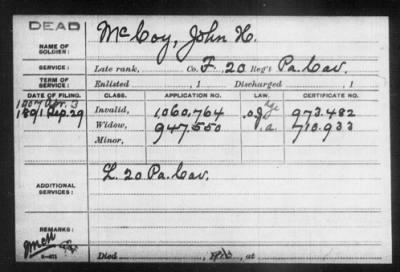 DEAD
McCoy, John H.
NAME OF SOLDIER:
SERVICE: Late rank, Co. F, 20 Reg't Pa. Cav.
TERM OF SERVICE: Enlisted , 1 Discharged , 1
DATE OF FILING. CLASS. APPLICATION NO. LAW. CERTIFICATE NO.
Apr. 3 Invalid, 1,060,764 973.482
1891 Sep. 29 Widow, 947.550 710.933
Minor,
ADDITIONAL SERVICES: L. 20 Pa. Cav.
REMARKS:
Died , at